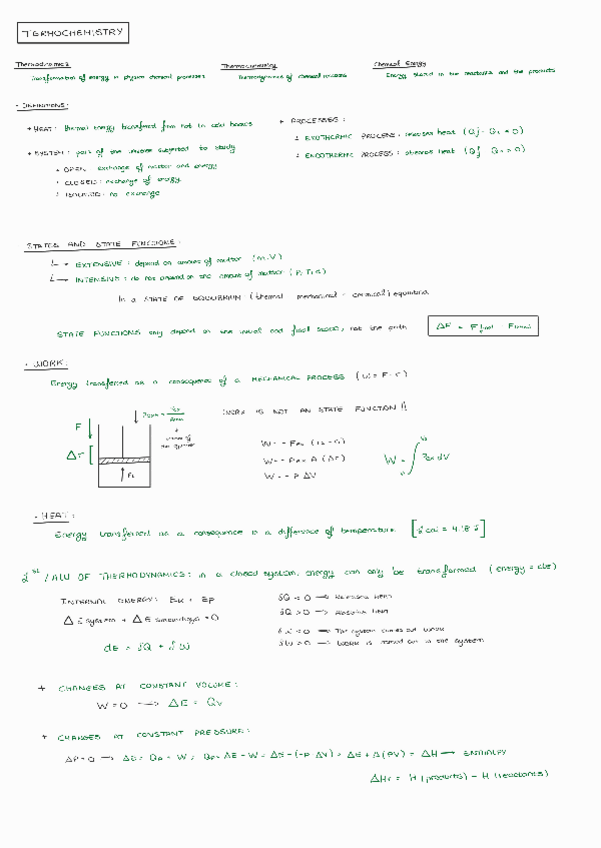 TERMOCHEMISTRY
Thermodynamics
Transformation of energy in physico chemical processes
Thermochemistry
Thermodynamics of chemical
Chemical Energy
Energy stored in the reactants and the products
· DEFINITIONS:
→ HEAT: thermal energy transferred from hot to cold bodies
→ SYSTEM: part of the universe subjected to study
• OPEN: exchange of matter and energy
• CLOSED: exchange of energy
no exchange
+ PROCESSES:
EXOTHERMIC PROCESS: releases heat
ENDOTHERMIC PROCESS: absorbs heat
STATES AND STATE FUNCTIONS:
→ EXTENSIVE: depend on amount of matter (m.V)
→ INTENSIVE: do not depend on the amount of matter
In a STATE OF EQUILIBRIUM (thermal - mechanical - chemical) equilibrium
STATE FUNCTIONS only depend on the initial and final states, not the path
ΔF = F final - F initial
· WORK:
Energy transferred as a consequence of a MECHANICAL PROCESS
WORK IS NOT AN STATE FUNCTION!!
F
Δr
W = - P ΔV
· HEAT:
Energy transferred as a consequence of a difference of temperature [1 cal = 4.18 J]
1st LAW OF THERMODYNAMICS: in a closed system, energy can only be transformed (energy = cte)
INTERNAL ENERGY: Ek + Ep
Δ E system + Δ E surroundings = 0
dE = δQ + δW
δQ < 0 → Releases heat
δQ > 0 → Absorbs heat
δW < 0 → The system carries out work
δW > 0 → Work is carried out in the system
+ CHANGES AT CONSTANT VOLUME:
W = 0 → ΔE = Qv
+ CHANGES AT CONSTANT PRESSURE:
ΔP = 0 → ΔE = Qp + W = Qp = ΔE - W = ΔE - (-P ΔV) = ΔE + Δ(PV) = ΔH → ENTHALPY
ΔHr = H (products) - H (reactants)